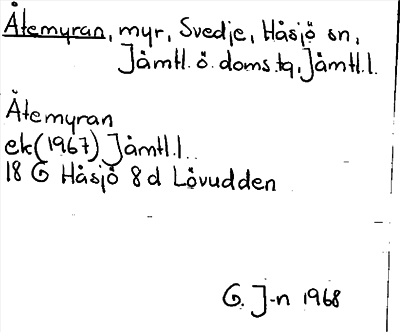 Åtemyran, myr, Svedje, Håsjö sn,
Jämtl. ö. doms.tg, Jämtl.l.
Åtemyran
ek(1967) Jämtl.l.
18 G Håsjö 8 d Lövudden
G. J-n 1968